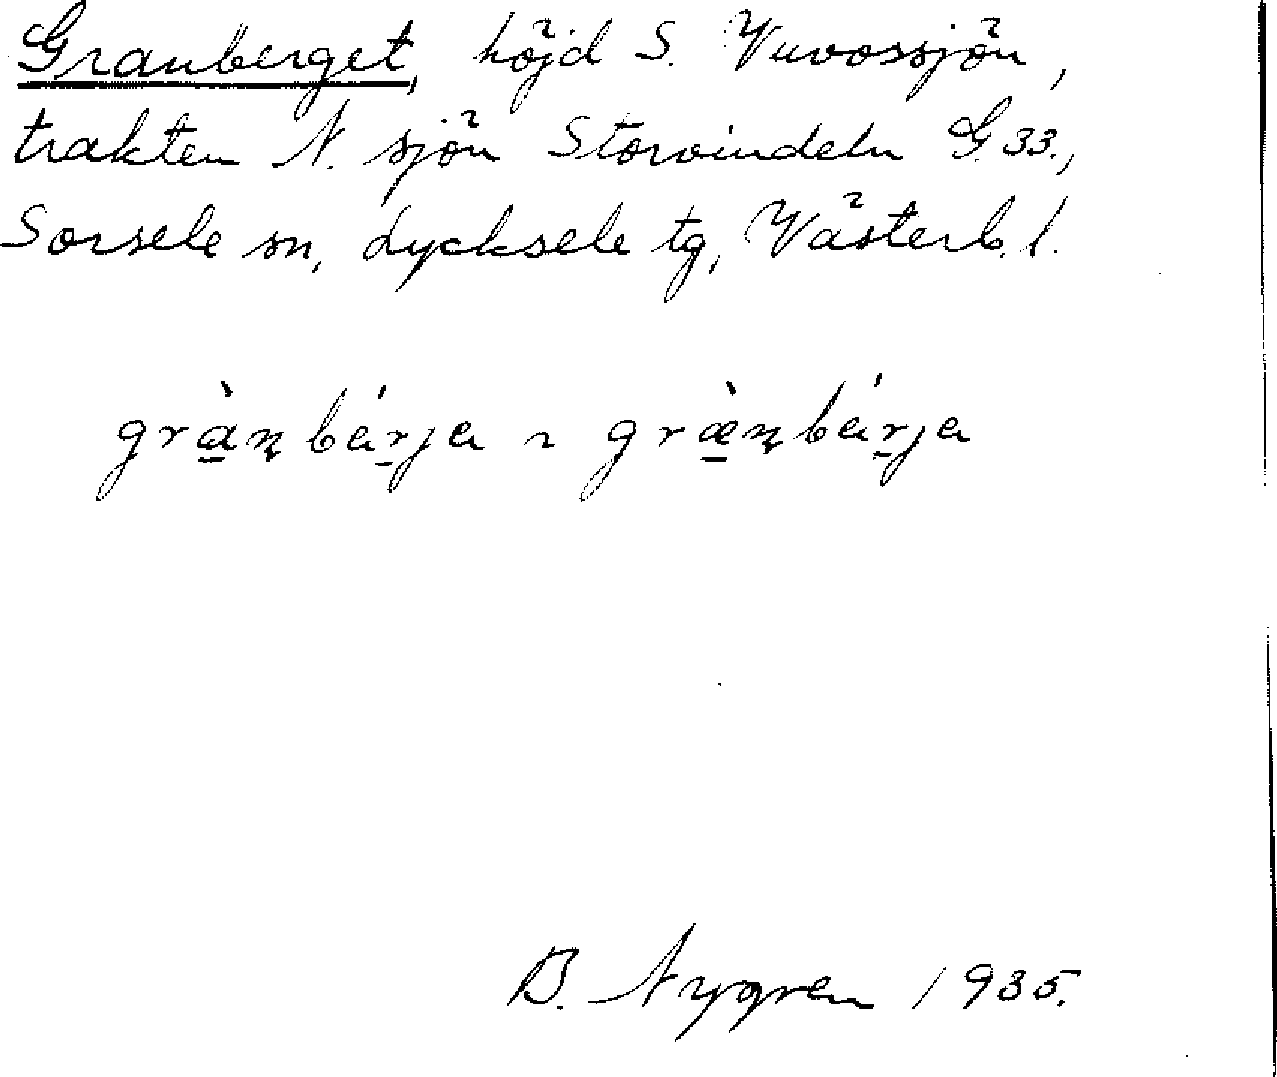 Granberget, höjd S. Vuvossjön,
trakten N. sjön Storvindeln G.33.,
Sorsele sn, Lycksele tg, Västerb. l.
grànbárja ~ græ̀nbárja
B. Nygren 1935.